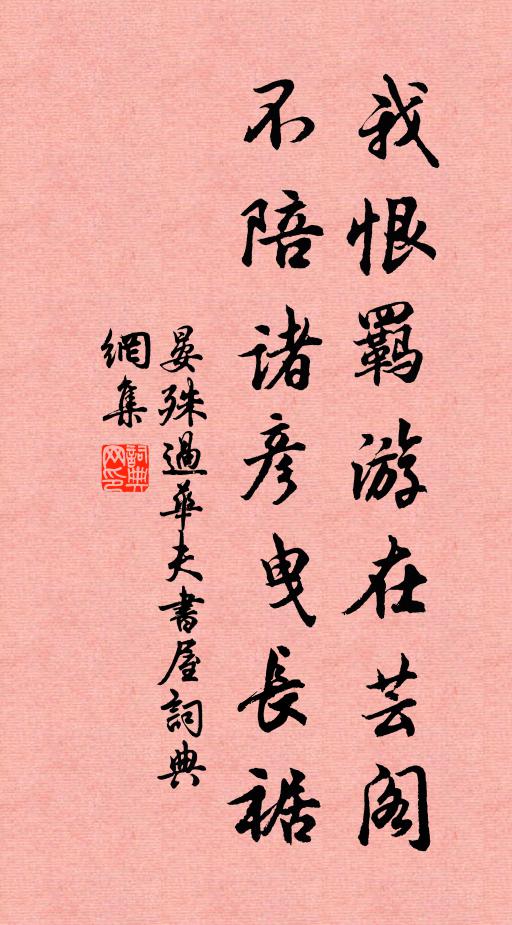 我恨羈游在芸阁
不陪诸彥曳長裾
晏殊過華夫書屋詞典
網集
詞典
网印